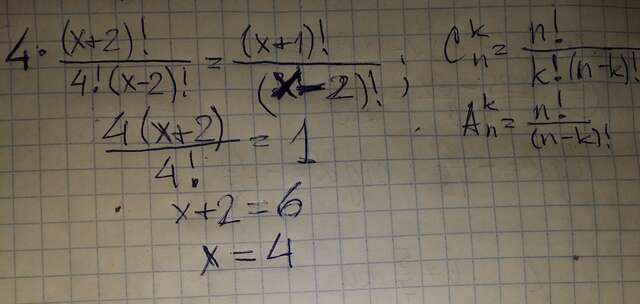 4· (x+2)! / 4!(x-2)! = (x+1)! / (x-2)! ; C_n^k = n! / k!(n-k)!
4(x+2) / 4! = 1 A_n^k = n! / (n-k)!
x+2=6
x=4